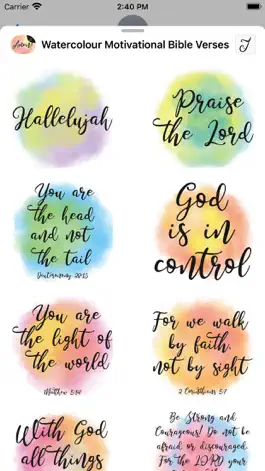 Carrier
2:40 PM
Watercolour Motivational Bible Verses
Hallelujah
Praise
the Lord
You are
the head
and not
the tail
Deuteronomy 28:13
God
is in
control
You are
the light of
the world
Matthew 5:14
For we walk
by faith,
not by sight
2 Corinthians 5:7
With God
all things
Be Strong and
Courageous! Do not
be afraid or
discouraged.
For the LORD your